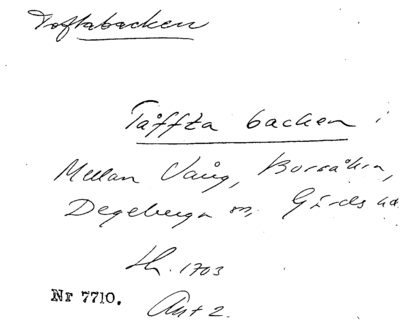 Toftabacken
Täffta backen
Mellan Vång, Borråkra,
Degeberga m, Gärds
1703
Nr 7710. Akt 2.